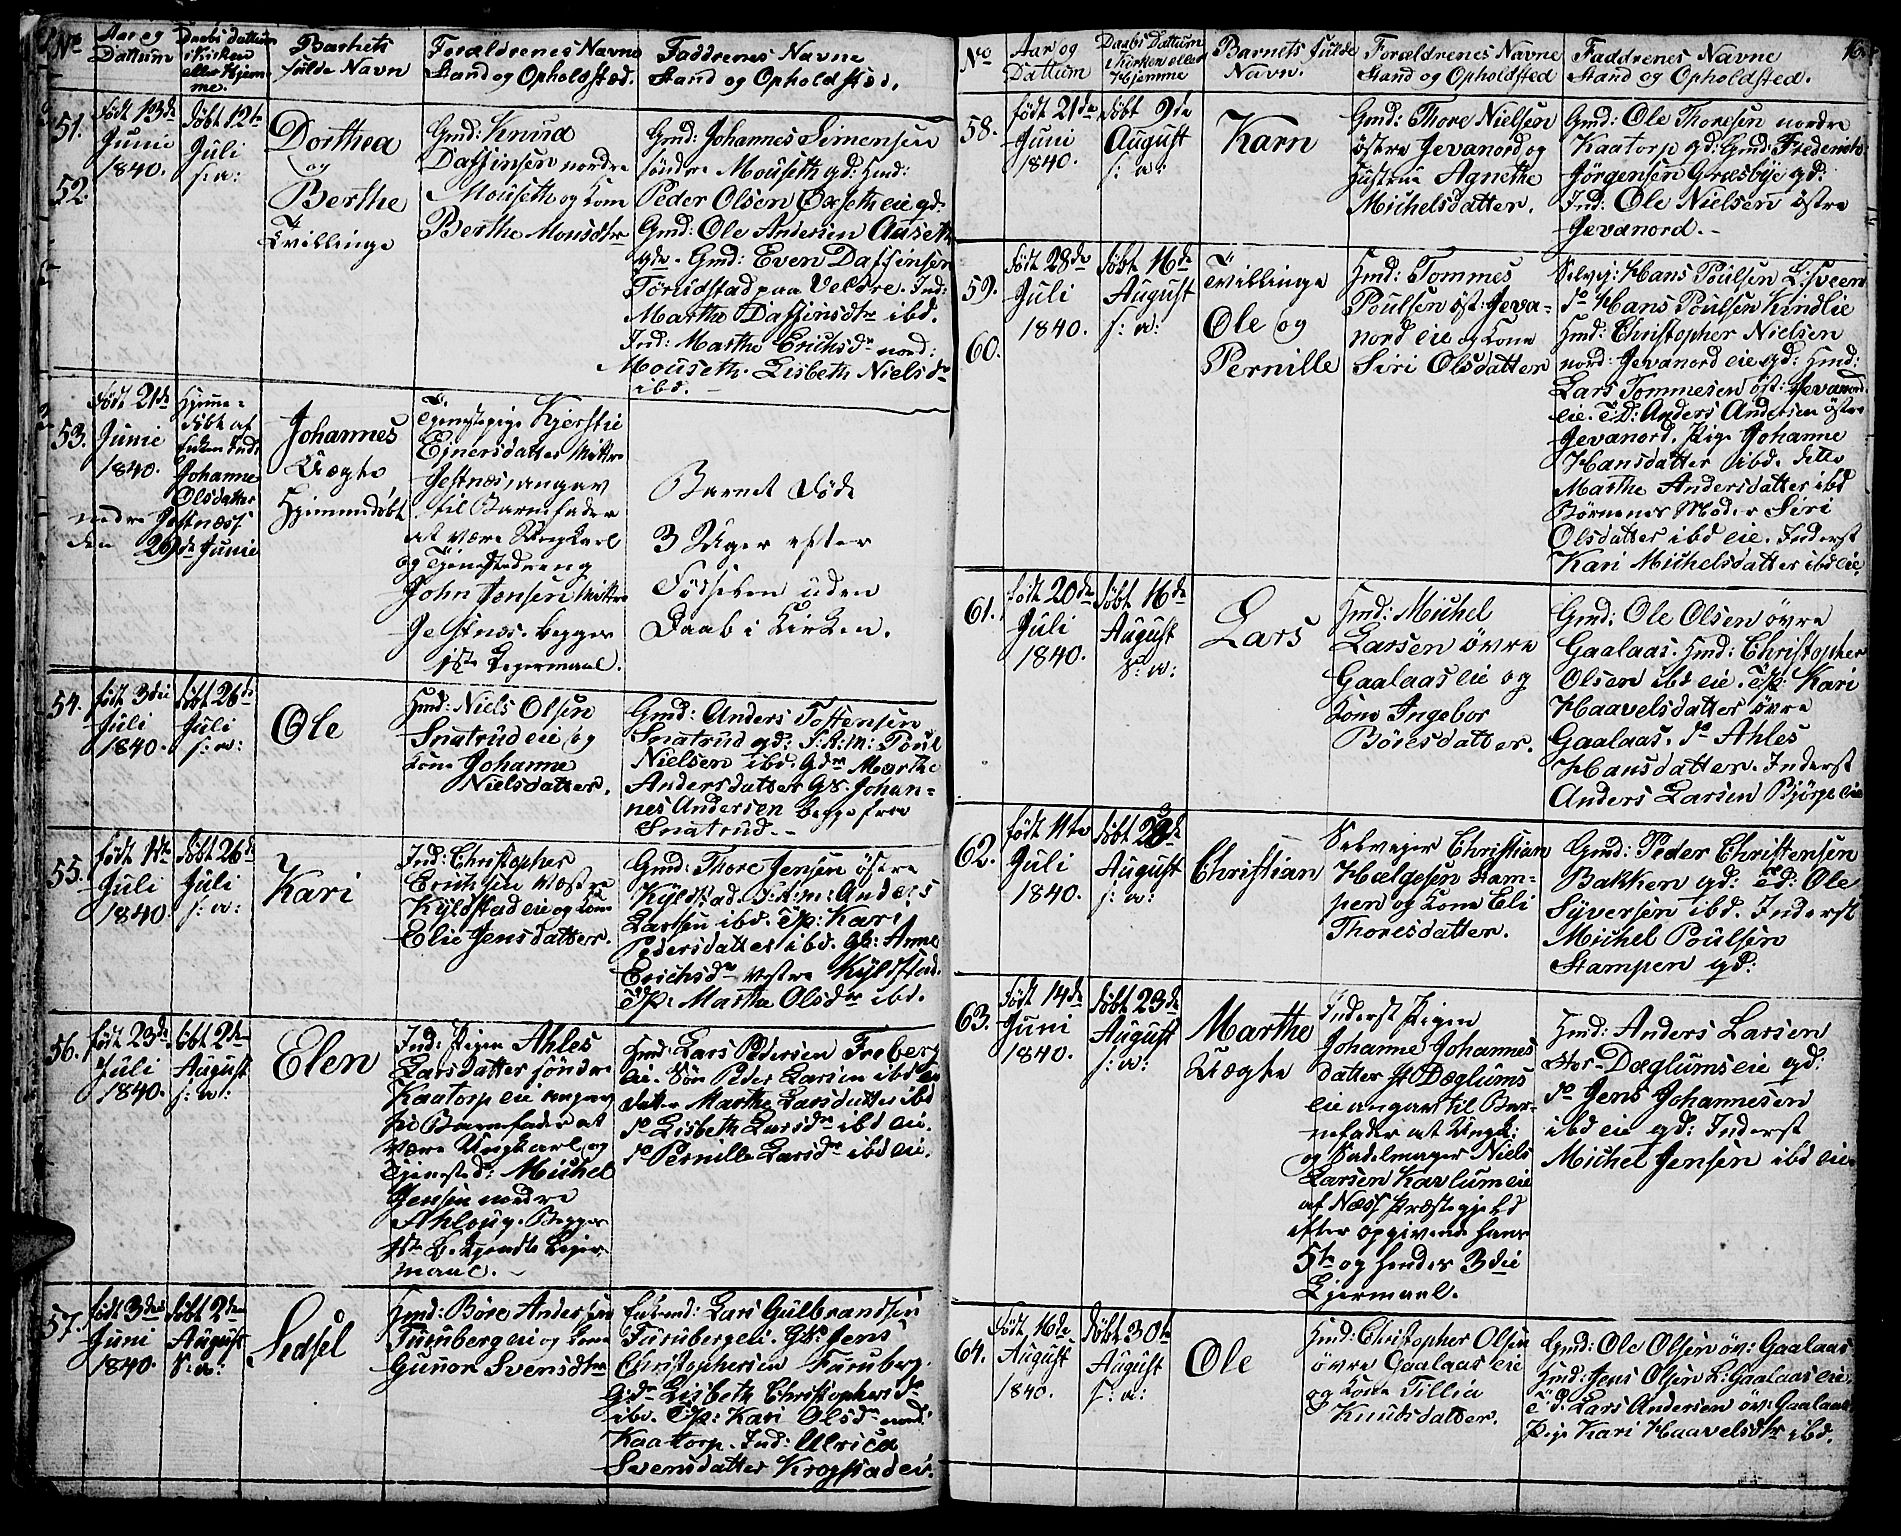 No
Aar og
Dattum
Daabs dattum
i Kirken
eller Hjem-
me.
Barnets
fulde Navn
Forældrenes Navne
Stand og Opholdsted.
Faddrenes Navne
Stand og Opholdsted.
51.
52.
født 13de
Junii
1840.
døbt 12te
Juli
s: a:
Dorthea
og
Berthe
Tvillinge
Gmd: Knud
Daffinsen nordre
Mouseth og Kone
Berthe Monsdtr
Gmd: Johannes Simensen
søndre Mouseth gd: Hmd:
Peder Olsen Oxseth eie gd.
Gmd: Ole Andersen Auseth
gdr. Gmd: Even Daffinsen
Torudstad paa Veldre. Ind:
Marthe Daffinsdtr ibd.
Ind: Marthe Erichsdr nord:
Mouseth. Lisbeth Nielsdr
ibd.
53.
født 21de
Junie
1840.
Hjemme-
døbt af
Enken Ind:
Johanne
Olsdatter
nedre Jestnæss
den 29de Junie
Johannes
Uægte
Hjemmedøbt
Tjenestepige Kjerstie
Ejnersdatter Mittre
Jestnæs, angav
til Barnefader
at være Ungkarl
og Tjenestedreng
John Jensen Mittre
Jestnæs. begges
1ste Lejermaal.
Barnet døde
3 Uger efter
Fødselen uden
Daab i Kirken.
54.
født 3die
Juli
1840.
døbt 26de
Juli
s: a:
Ole
Hmd: Niels Olsen
Snatrud eie og
Kone Johanne
Nielsdatter.
Gmd: Anders Toffensen
Snatrud gd: S: K: m: Poul
Nielsen ibd. Gdr Marthe
Andersdatter GS. Johan-
nes Andersen begge fra
Snatrud.
55.
født 1de
Juli
1840
døbt 26de
Juli
s: a:
Kari
Ind: Christopher
Erichsen Vestre
Kyldstad eie og Kone
Elie Jensdatter.
Gmd: Thore Jensen østre
Kyldstad. S: K: m: Anders
Larsen ibd. Tp: Kari
Pedersdatter ibd. Gk: Anne
Erichsdr vestre Kyldstad.
Tp: Marthe Olsdr ibd.
56.
født 23de
Juli
1840.
døbt 2de
August
s: a:
Elen
Ind: Pigen Ahles
Larsdatter søndre
Kaatorp eie angav
til Barnefader at
være Ungkarl og
Tjenested: Michel
Jensen nordre
Ahloug. Begges
1ste bekjendte Lejer-
maal.
Hmd: Lars Pedersen Freberg
eie. Søn Peder Larsen ibd eie
datter Marthe Larsdatter ibd
do Lisbeth Larsdr ibd eie.
do Pernille Larsdr ibd eie.
57.
født 3die
Juni
1840.
døbt 2den
August
s: a:
Sedsel
Hmd: Børe Andersen
Furuberg eie og Kone
Gunor Svensdtr
Lars Gulbrandsen
Furuberg eie. GS. Jens
Christophersen Furuberg.
Gdr Lisbeth Christophersdr
ibd. Tp: Kari Olsdr nord:
Kaatorp. Ind: Ulrica
Svensdatter Krogstad eie.
No
Aar og
Dattum
Daabs Dattum
i Kirken eller
Hjemme
Barnets fulde
Navn.
Forældrenes Navne
Stand og Opholdsted
Faddrenes Navne
Stand og Opholdsted.
58.
født 21de
Juni
1840.
døbt 9de
August
s: a:
Karn
Gmd: Thore Nielsen
østre Jevanord og
Hustrue Agnethe
Michelsdatter.
Gmd: Ole Thoresen nordre
Kaatorp gd: Gmd: Frederich
Jørgensen Græsbye gd:
Ind: Ole Nielsen østre
Jevanord.
59.
60.
født 28de
Juli
1840.
døbt 16de
August
s: a:
Tvillinge
Ole og
Pernille
Hmd: Tommes
Poulsen øst: Jeva-
nord eie og Kone
Siri Olsdatter
Selvej: Hans Poulsen Lisveen
do Hans Poulsen Kindlie
Hmd: Christopher Nielsen
nord: Jevanord eie gd: Hmd:
Lars Tommesen øst: Jevanord
eie. T.D: Anders Andersen østre
Jevanord. Pige Johanne
Hansdatter ibd. ditto
Marthe Andersdatter ibd
Børnenes Moder Siri
Olsdatter ibd eie. Inderst
Kari Michelsdatter ibd eie.
61.
født 20de
Juli
1840.
døbt 16de
August
s: a:
Lars
Hmd: Michel
Larsen øvre
Gaalaas eie og
Kone Ingebor
Børesdatter.
Gmd: Ole Olsen øvre
Gaalaas. Hmd: Christopher
Olsen ibd eie. Tp: Kari
Haavelsdatter øvre
Gaalaas. do Ahles
Hansdatter. Inderst
Anders Larsen Bjørge eie
62.
født 11te
Juli
1840.
døbt 23de
August
s: a:
Christian
Selvejer Christian
Hælgesen Stam-
pen og Kone Eli
Thoresdatter.
Gmd: Peder Christensen
Bakken gd: Td: Ole
Syversen ibd. Inderst
Michel Poulsen
Stampen gd:
63.
født 14de
Juni
1840.
døbt 23de
August
s: a:
Marthe
Uægte
Inderst Pigen
Johanne Johannes
datter St: Dæglums
eie angav til Bar-
nefader at Ungk:
og Sadelmager Niels
Larsen Kavlum eie
af Næss Præstegjeld
efter opgivende hans
5te og hendes 3die
Lejermaal.
Hmd: Anders Larsen
Stor-Dæglums eie gd:
do Jens Johannesen
ibd eie gd: Inderst
Michel Jensen ibd eie.
64.
født 16de
August
1840.
døbt 30te
August
s: a:
Ole
Hmd: Christopher Olsen
øvre Gaalaas eie
og Kone Tillia
Knudsdatter.
Gmd: Ole Olsen øv: Gaalaas
Hmd: Jens Olsen L: Gaalaas eie.
T.d. Lars Andersen øv: Gaalaas
Pige Kari Haavelsdtr ibd.